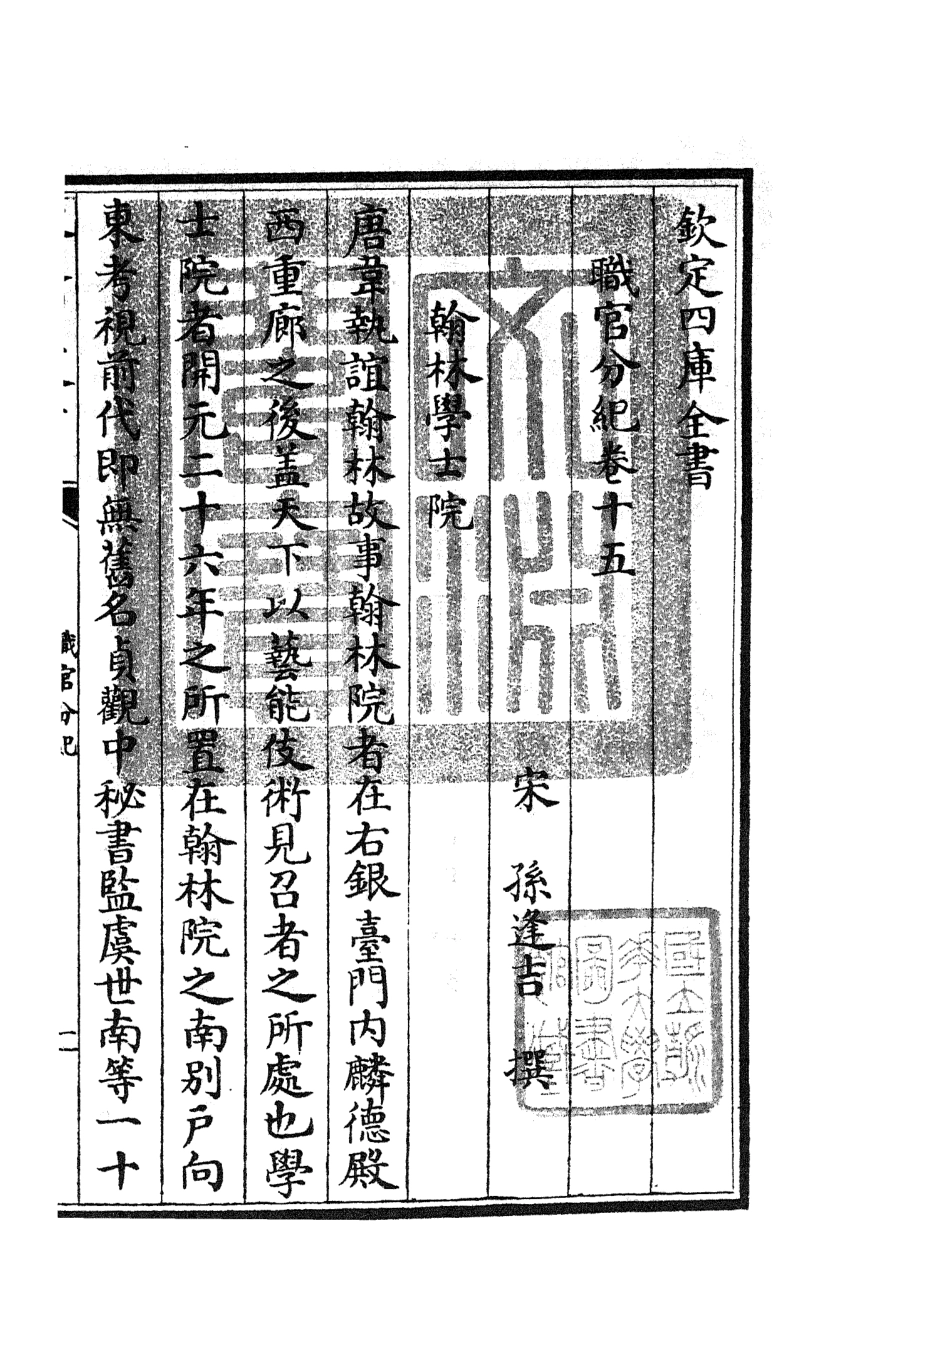 欽定四庫全書
職官分紀卷十五
宋 孫逢吉 撰
翰林學士院
唐韋執誼翰林故事翰林院者在右銀臺門内麟德殿
西重廊之後盖天下以藝能伎術見召者之所處也學
士院者開元二十六年之所置在翰林院之南别戶向
東考視前代即無舊名貞觀中秘書監虞世南等一十
職官分紀